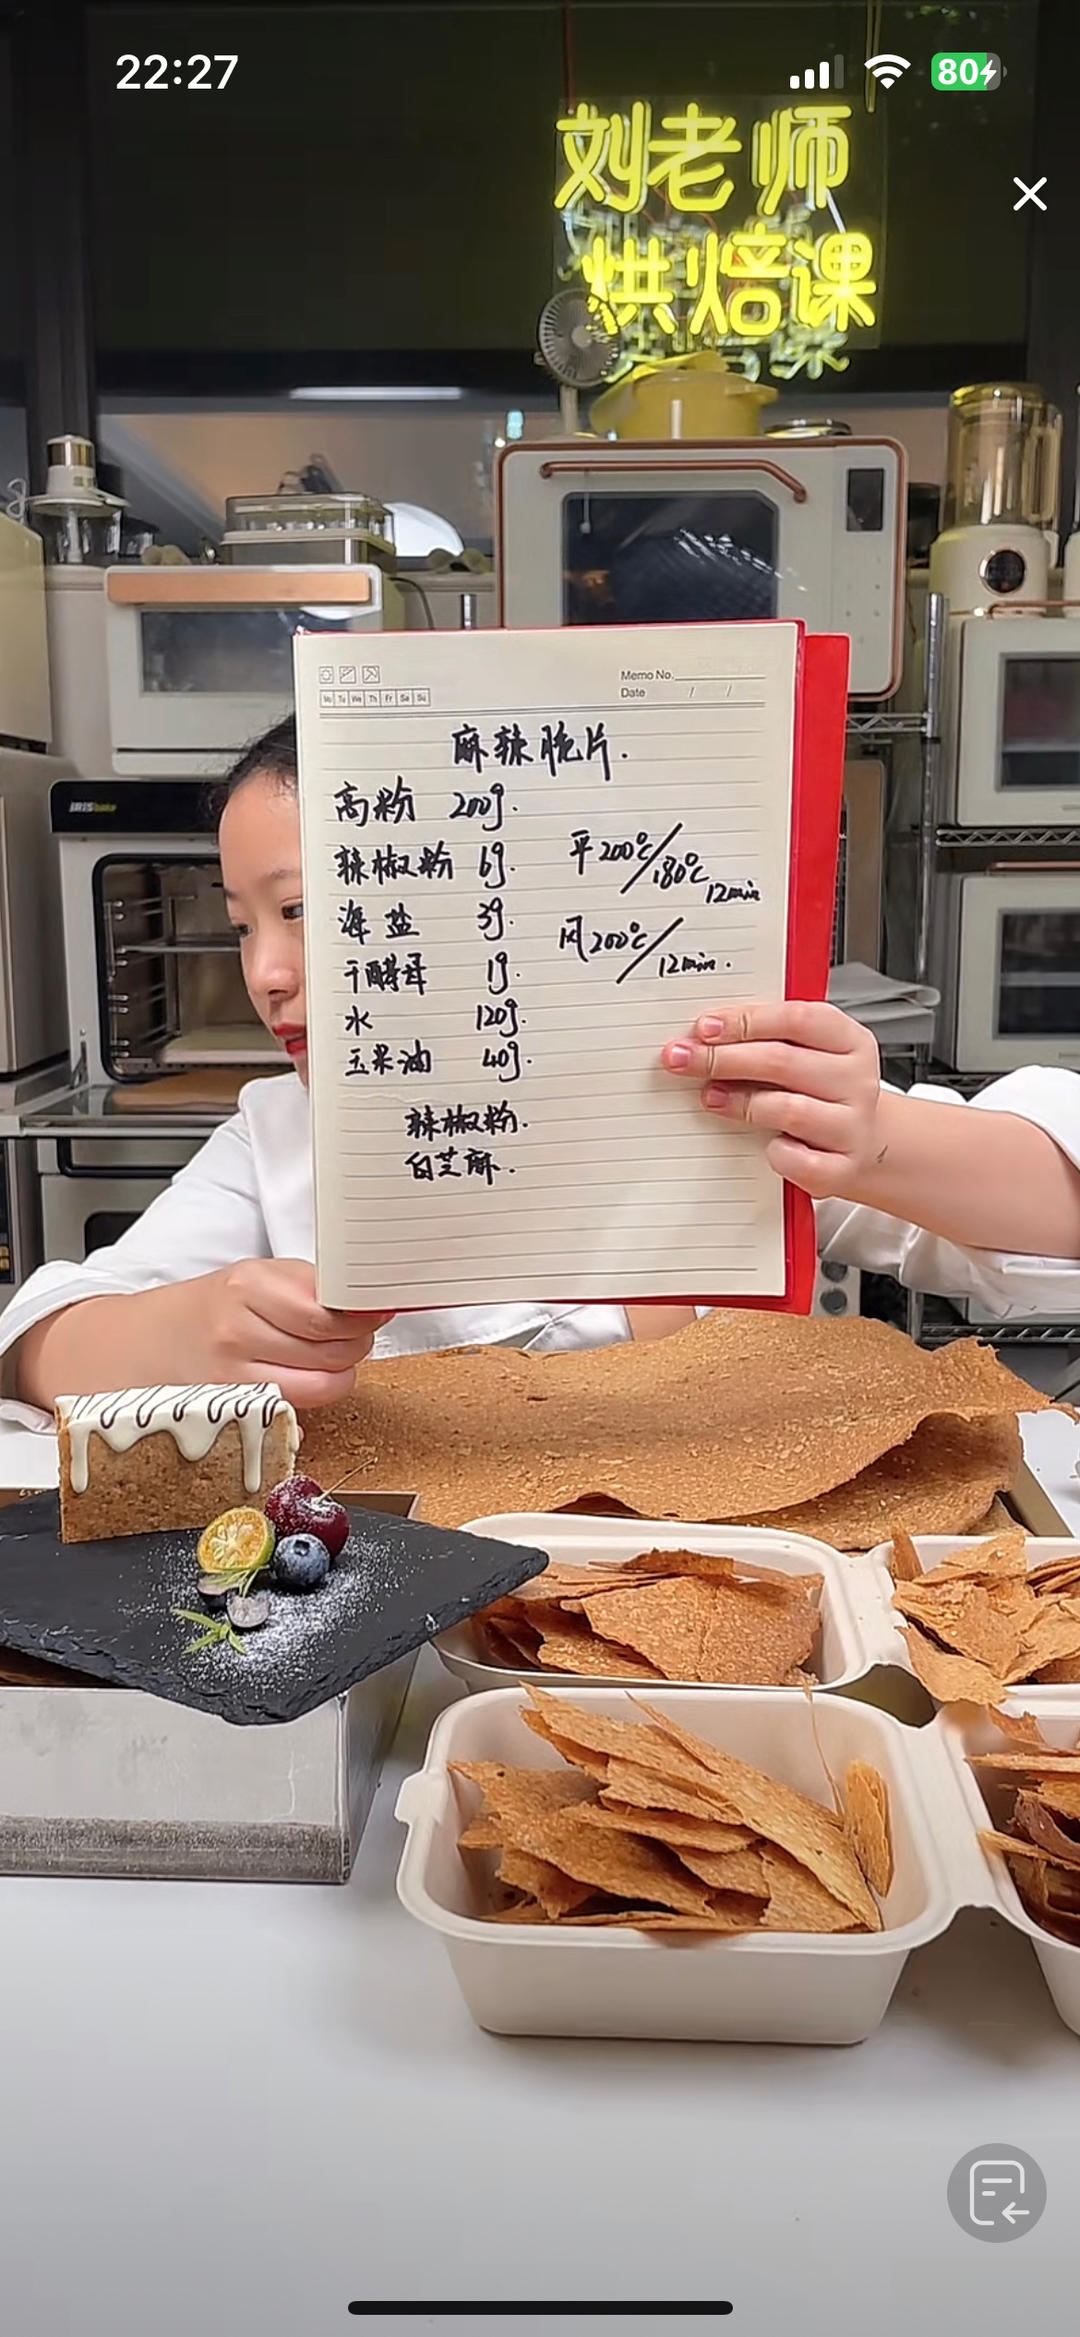 22:27
80
刘老师
烘焙课
Memo No.
Date / /
Mo Tu We Th Fr Sa Su
麻辣脆片.
高粉 200g.
辣椒粉 6g.
海盐 3g.
干酵母 1g.
水 120g.
玉米油 40g.
平200℃/180℃ 12min
风200℃/12min.
辣椒粉.
白芝麻.